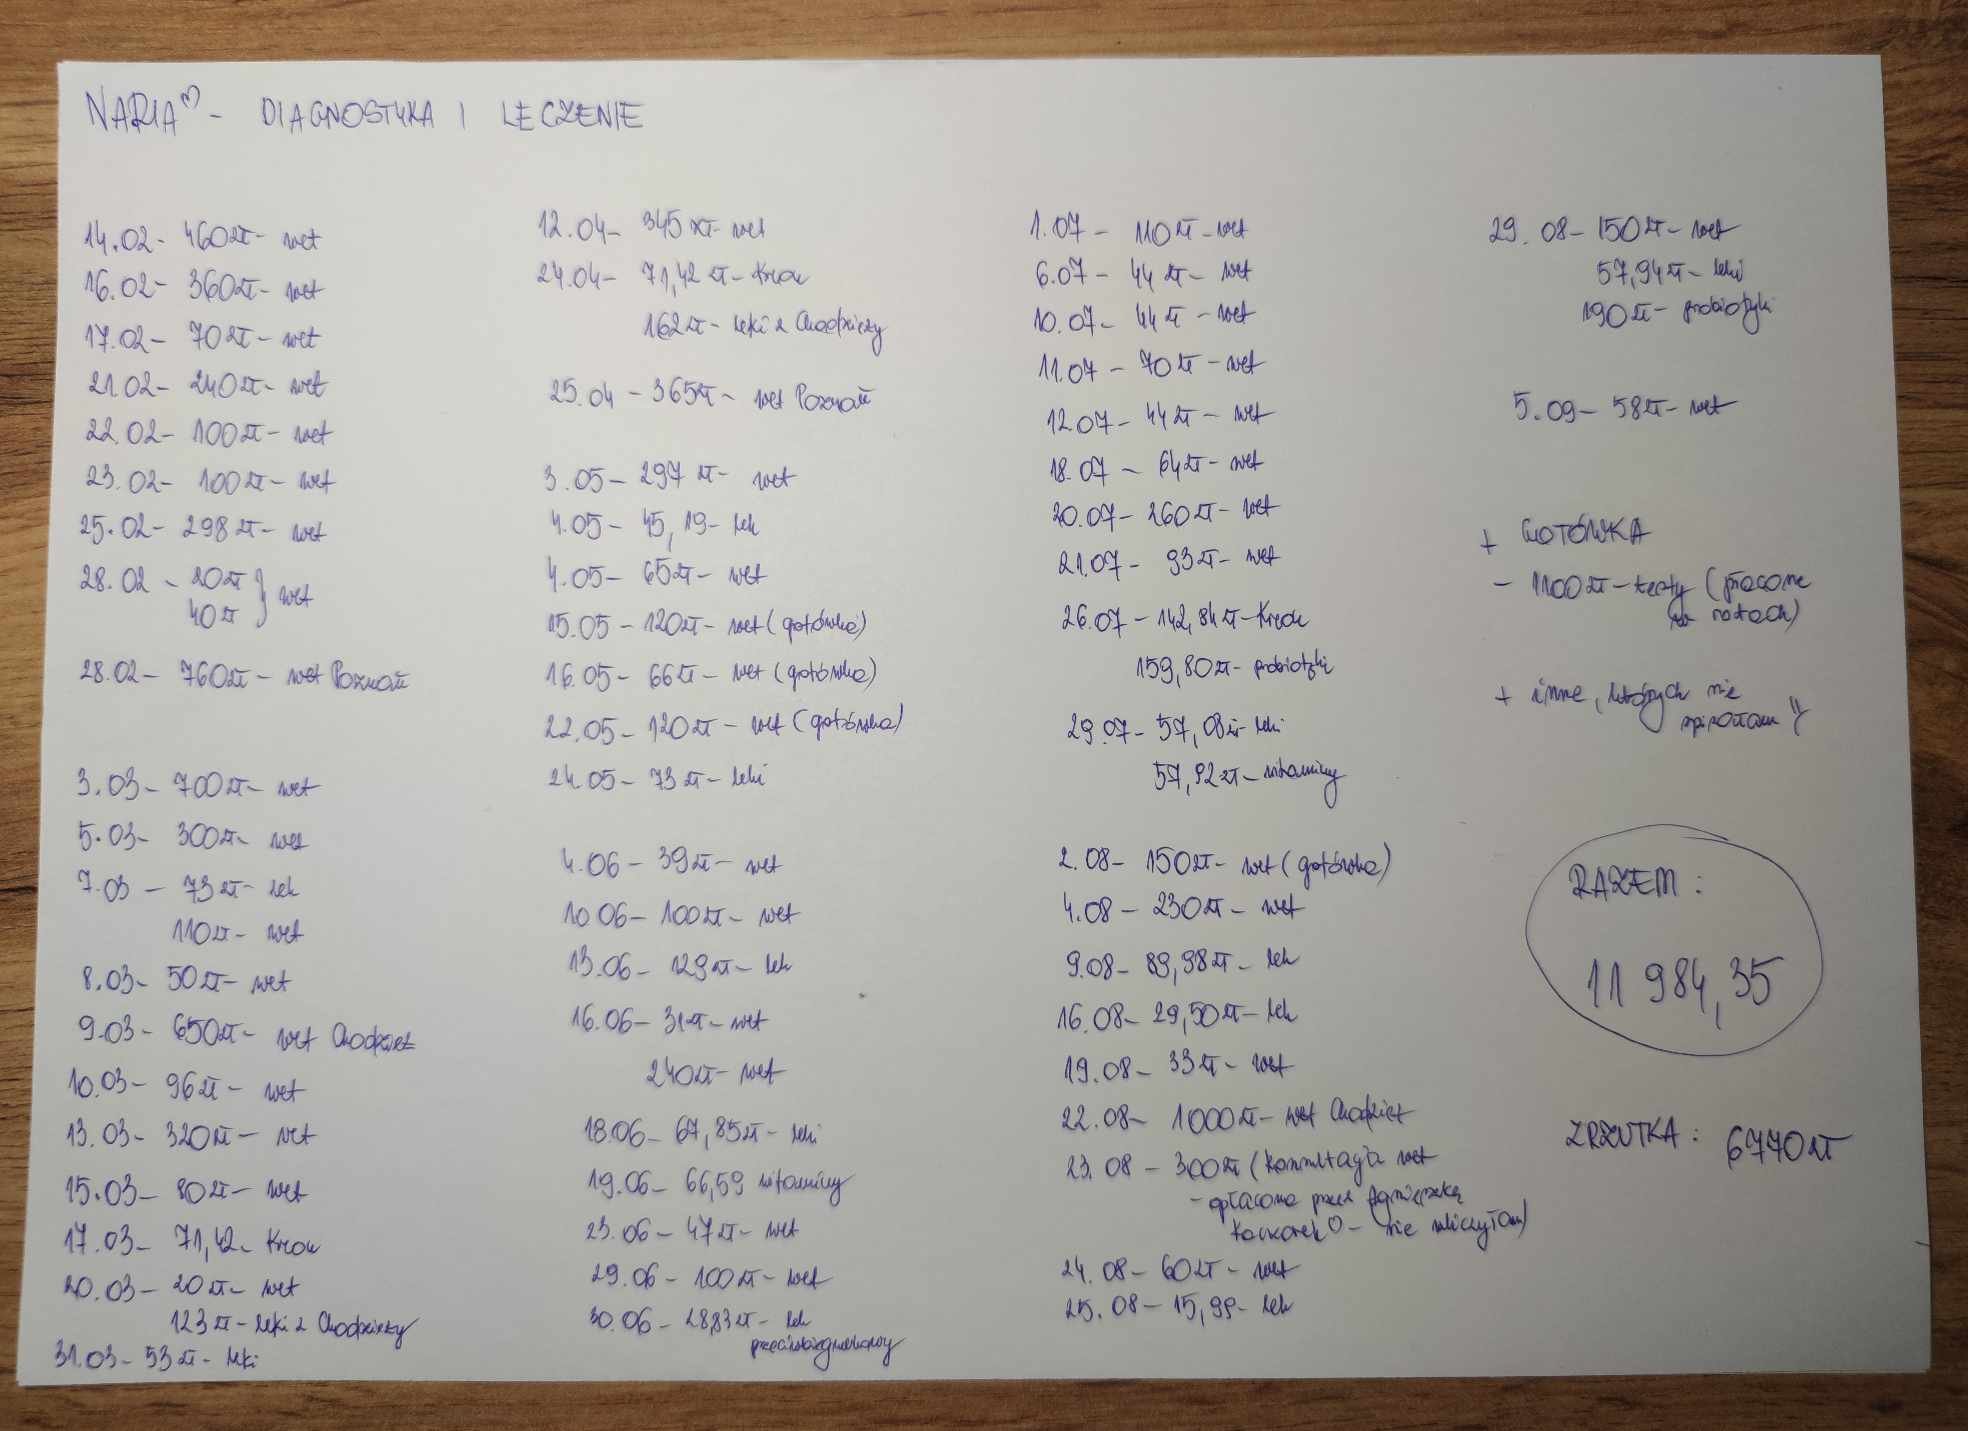 NARIA♡ - DIAGNOSTYKA I LECZENIE
14.02- 460zł- wet
16.02- 360zł- wet
17.02- 70zł- wet
21.02- 240zł- wet
22.02- 100zł- wet
23.02- 100zł- wet
25.02- 298zł- wet
28.02 - 20zł } wet
40zł
28.02- 760zł- wet Poznań
3.03- 700zł- wet
5.03- 300zł- wet
7.03 - 73zł- lek
110zł- wet
8.03- 50zł- wet
9.03- 650zł- wet Chodzież
10.03- 96zł- wet
13.03- 320zł- wet
15.03- 80zł- wet
17.03- 71,42- Krew
20.03- 20zł- wet
123zł- leki z Chodzieży
31.03- 53zł- leki
12.04- 345zł- wet
24.04- 71,42zł- Krew
162zł- leki z Chodzieży
25.04 - 365zł- wet Poznań
3.05- 297zł- wet
4.05- 45,19- lek
4.05- 65zł- wet
15.05- 120zł- wet (gotówka)
16.05- 66zł- wet (gotówka)
22.05- 120zł- wet (gotówka)
24.05- 73zł- leki
4.06- 39zł- wet
10.06- 100zł- wet
13.06- 129zł- lek
16.06- 31zł- wet
240zł- wet
18.06- 67,85zł- leki
19.06- 66,59 witaminy
23.06- 47zł- wet
29.06- 100zł- wet
30.06- 28,83zł- lek
przeciwbiegunkowy
1.07- 110zł- wet
6.07- 44zł- wet
10.07- 44zł- wet
11.07- 70zł- wet
12.07- 44zł- wet
18.07- 64zł- wet
20.07- 260zł- wet
21.07- 93zł- wet
26.07- 142,84zł- Krew
159,80zł- probiotyki
29.07- 57,08zł- leki
57,92zł- witaminy
2.08- 150zł- wet (gotówka)
4.08- 230zł- wet
9.08- 89,98zł- lek
16.08- 29,50zł- lek
19.08- 33zł- wet
22.08- 1000zł- wet Chodzież
23.08 - 300zł (konsultacja wet
- opłacone przez Agnieszkę
♡- nie wliczyłam)
24.08- 60zł- wet
25.08- 15,99- lek
29.08- 150zł- wet
57,94zł- leki
190zł- probiotyki
5.09- 58zł- wet
+ GOTÓWKA
- 1100zł- testy (płacone
na ratach)
+ inne, których nie
spisałam
RAZEM:
11 984,35
ZRZUTKA: 6770zł